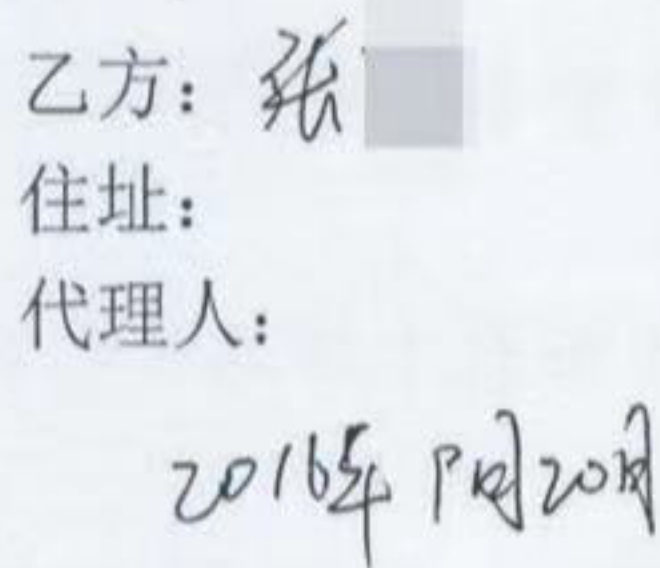 乙方：张
住址：
代理人：
2016年 月20日